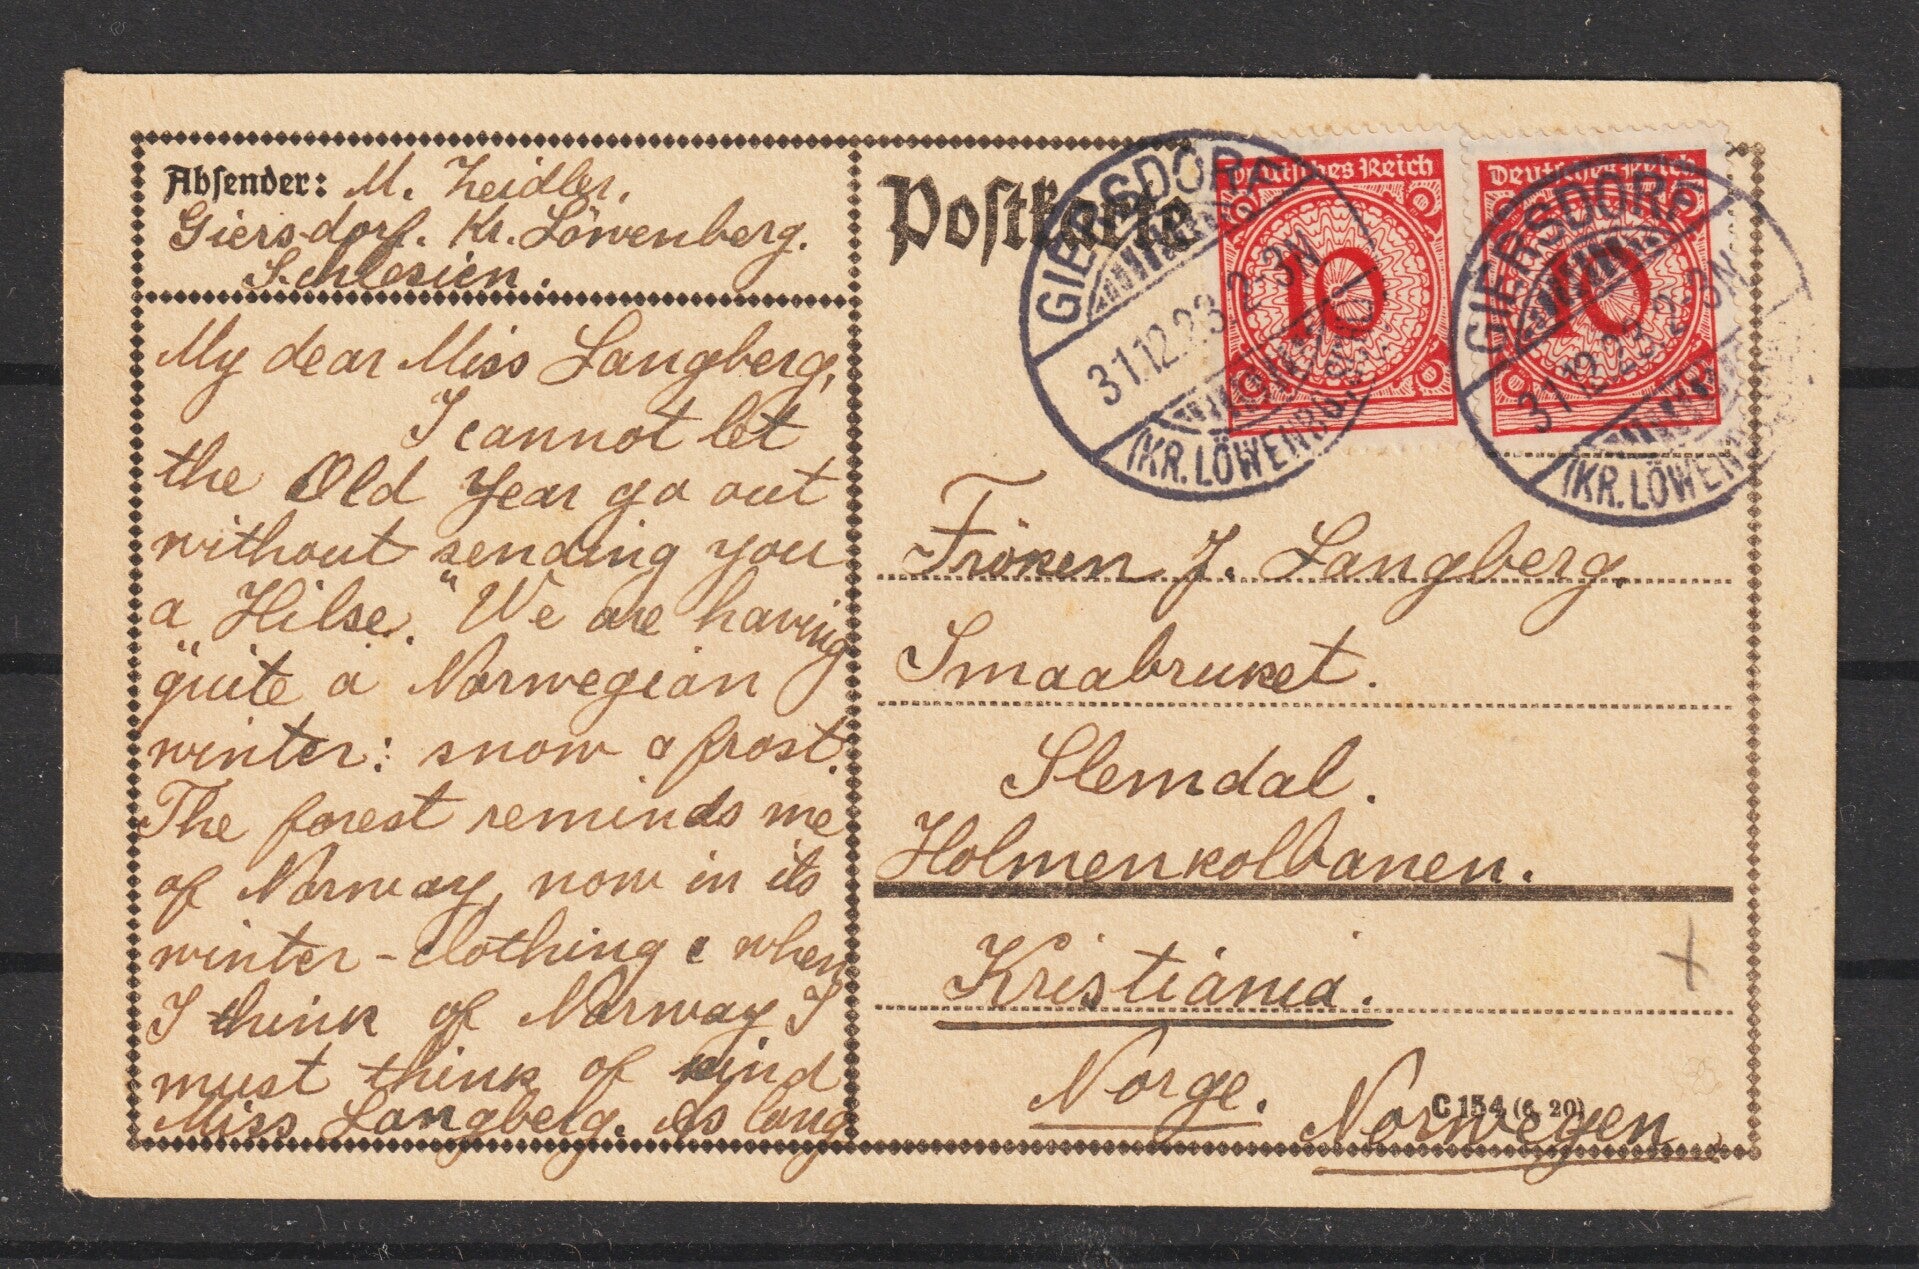 Absender: M. Zeidler,
Giersdorf. Kr. Löwenberg.
Schlesien.
My dear Miss Langberg,
I cannot let
the Old Year go out
without sending you
a "Hilse." We are having
quite a Norwegian
winter: snow & frost.
The forest reminds me
of Norway, now in its
winter-clothing & when
I think of Norway I
must think of kind
Miss Langberg. As long
Postkarte
Deutsches Reich
10
Deutsches Reich
10
GIERSDORF
31.12.23. 2-3N
(KR. LÖWENBG.
GIERSDORF
31.12.23. 2-3N
(KR. LÖWENB
Fröken J. Langberg.
Smaabruket.
Slemdal.
Holmenkolbanen.
Kristiania.
Norge.
Norwegen
C 154 (6. 20)